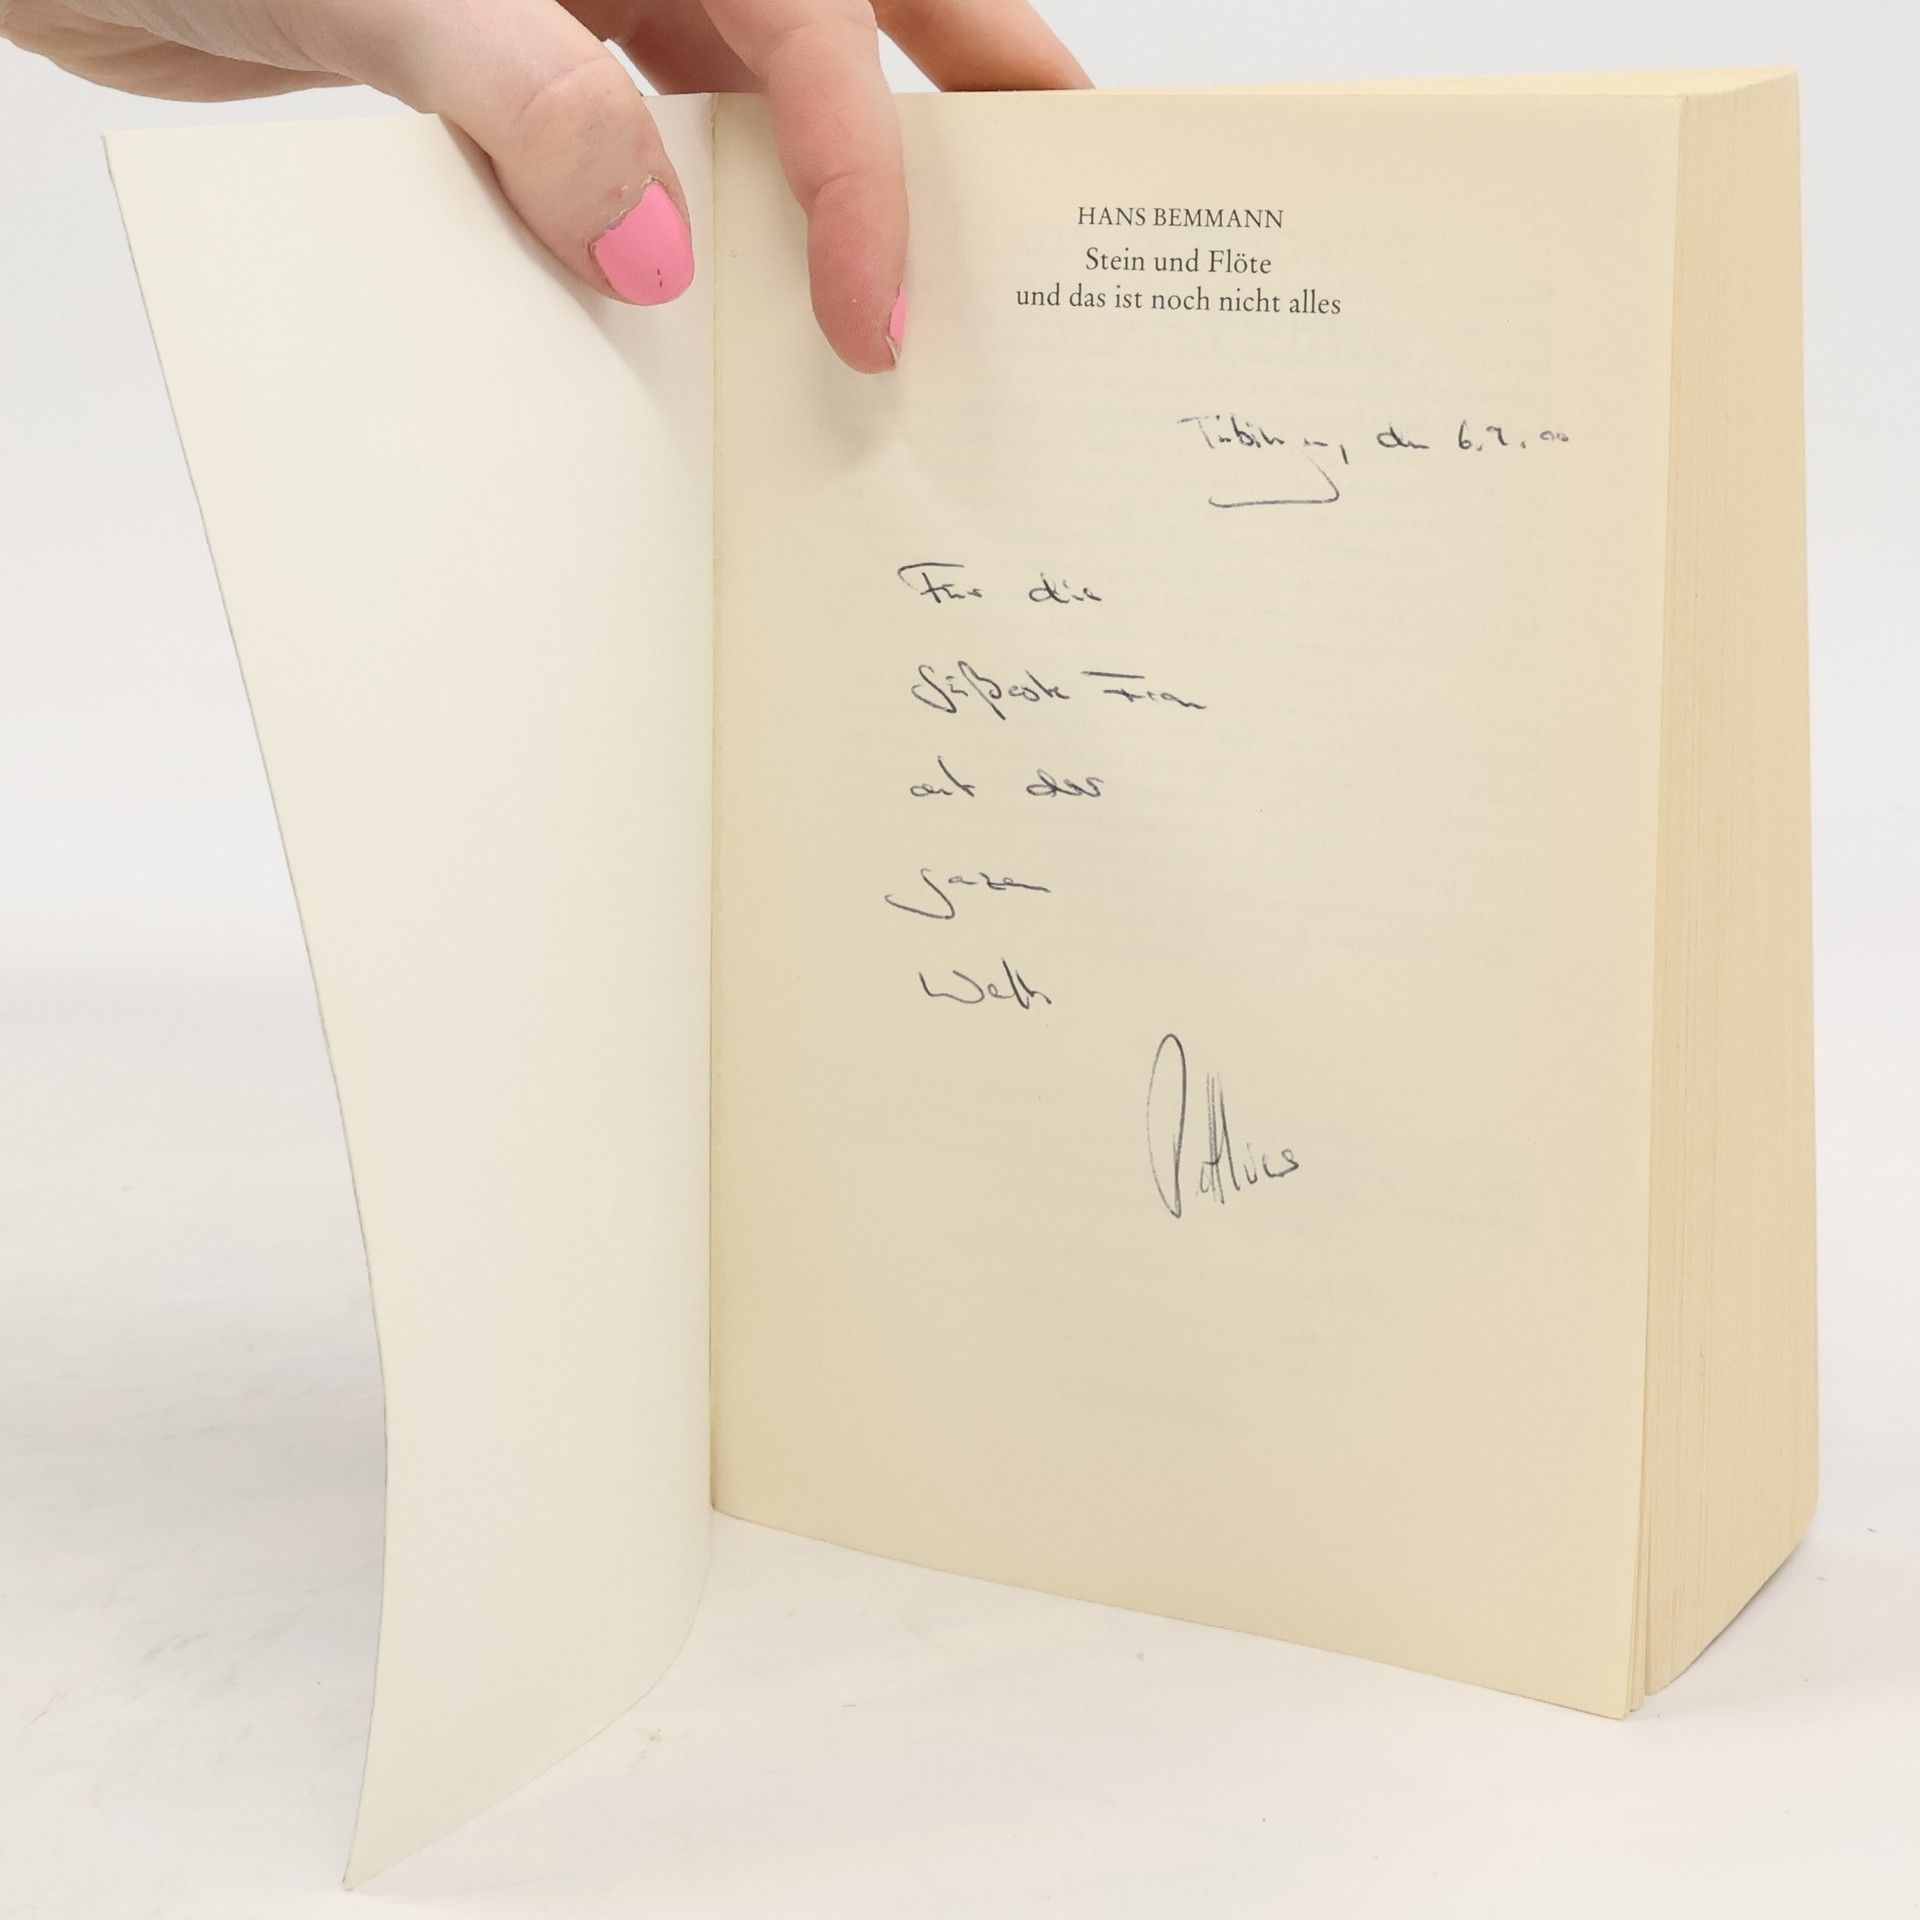 HANS BEMMANN
Stein und Flöte
und das ist noch nicht alles
Tübingen, den 6.7.00
Für die
süßeste Frau
auf der
ganzen
Welt
Matthias